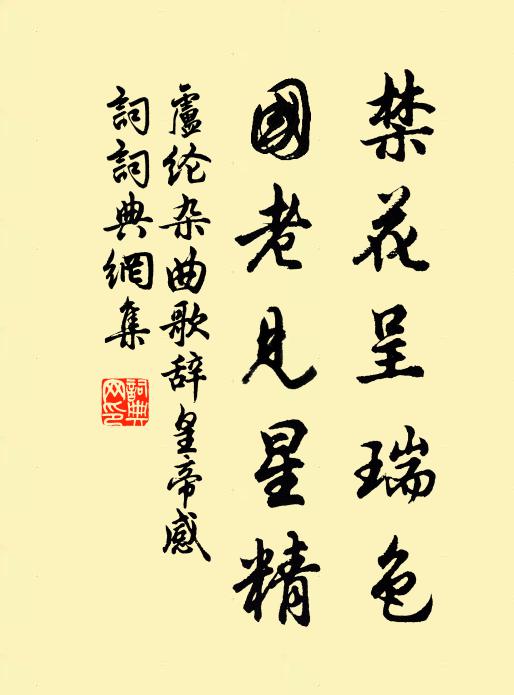 禁花呈瑞色
國老見星精
盧纶杂曲歌辞皇帝感
詞詞典網集
詞典网印